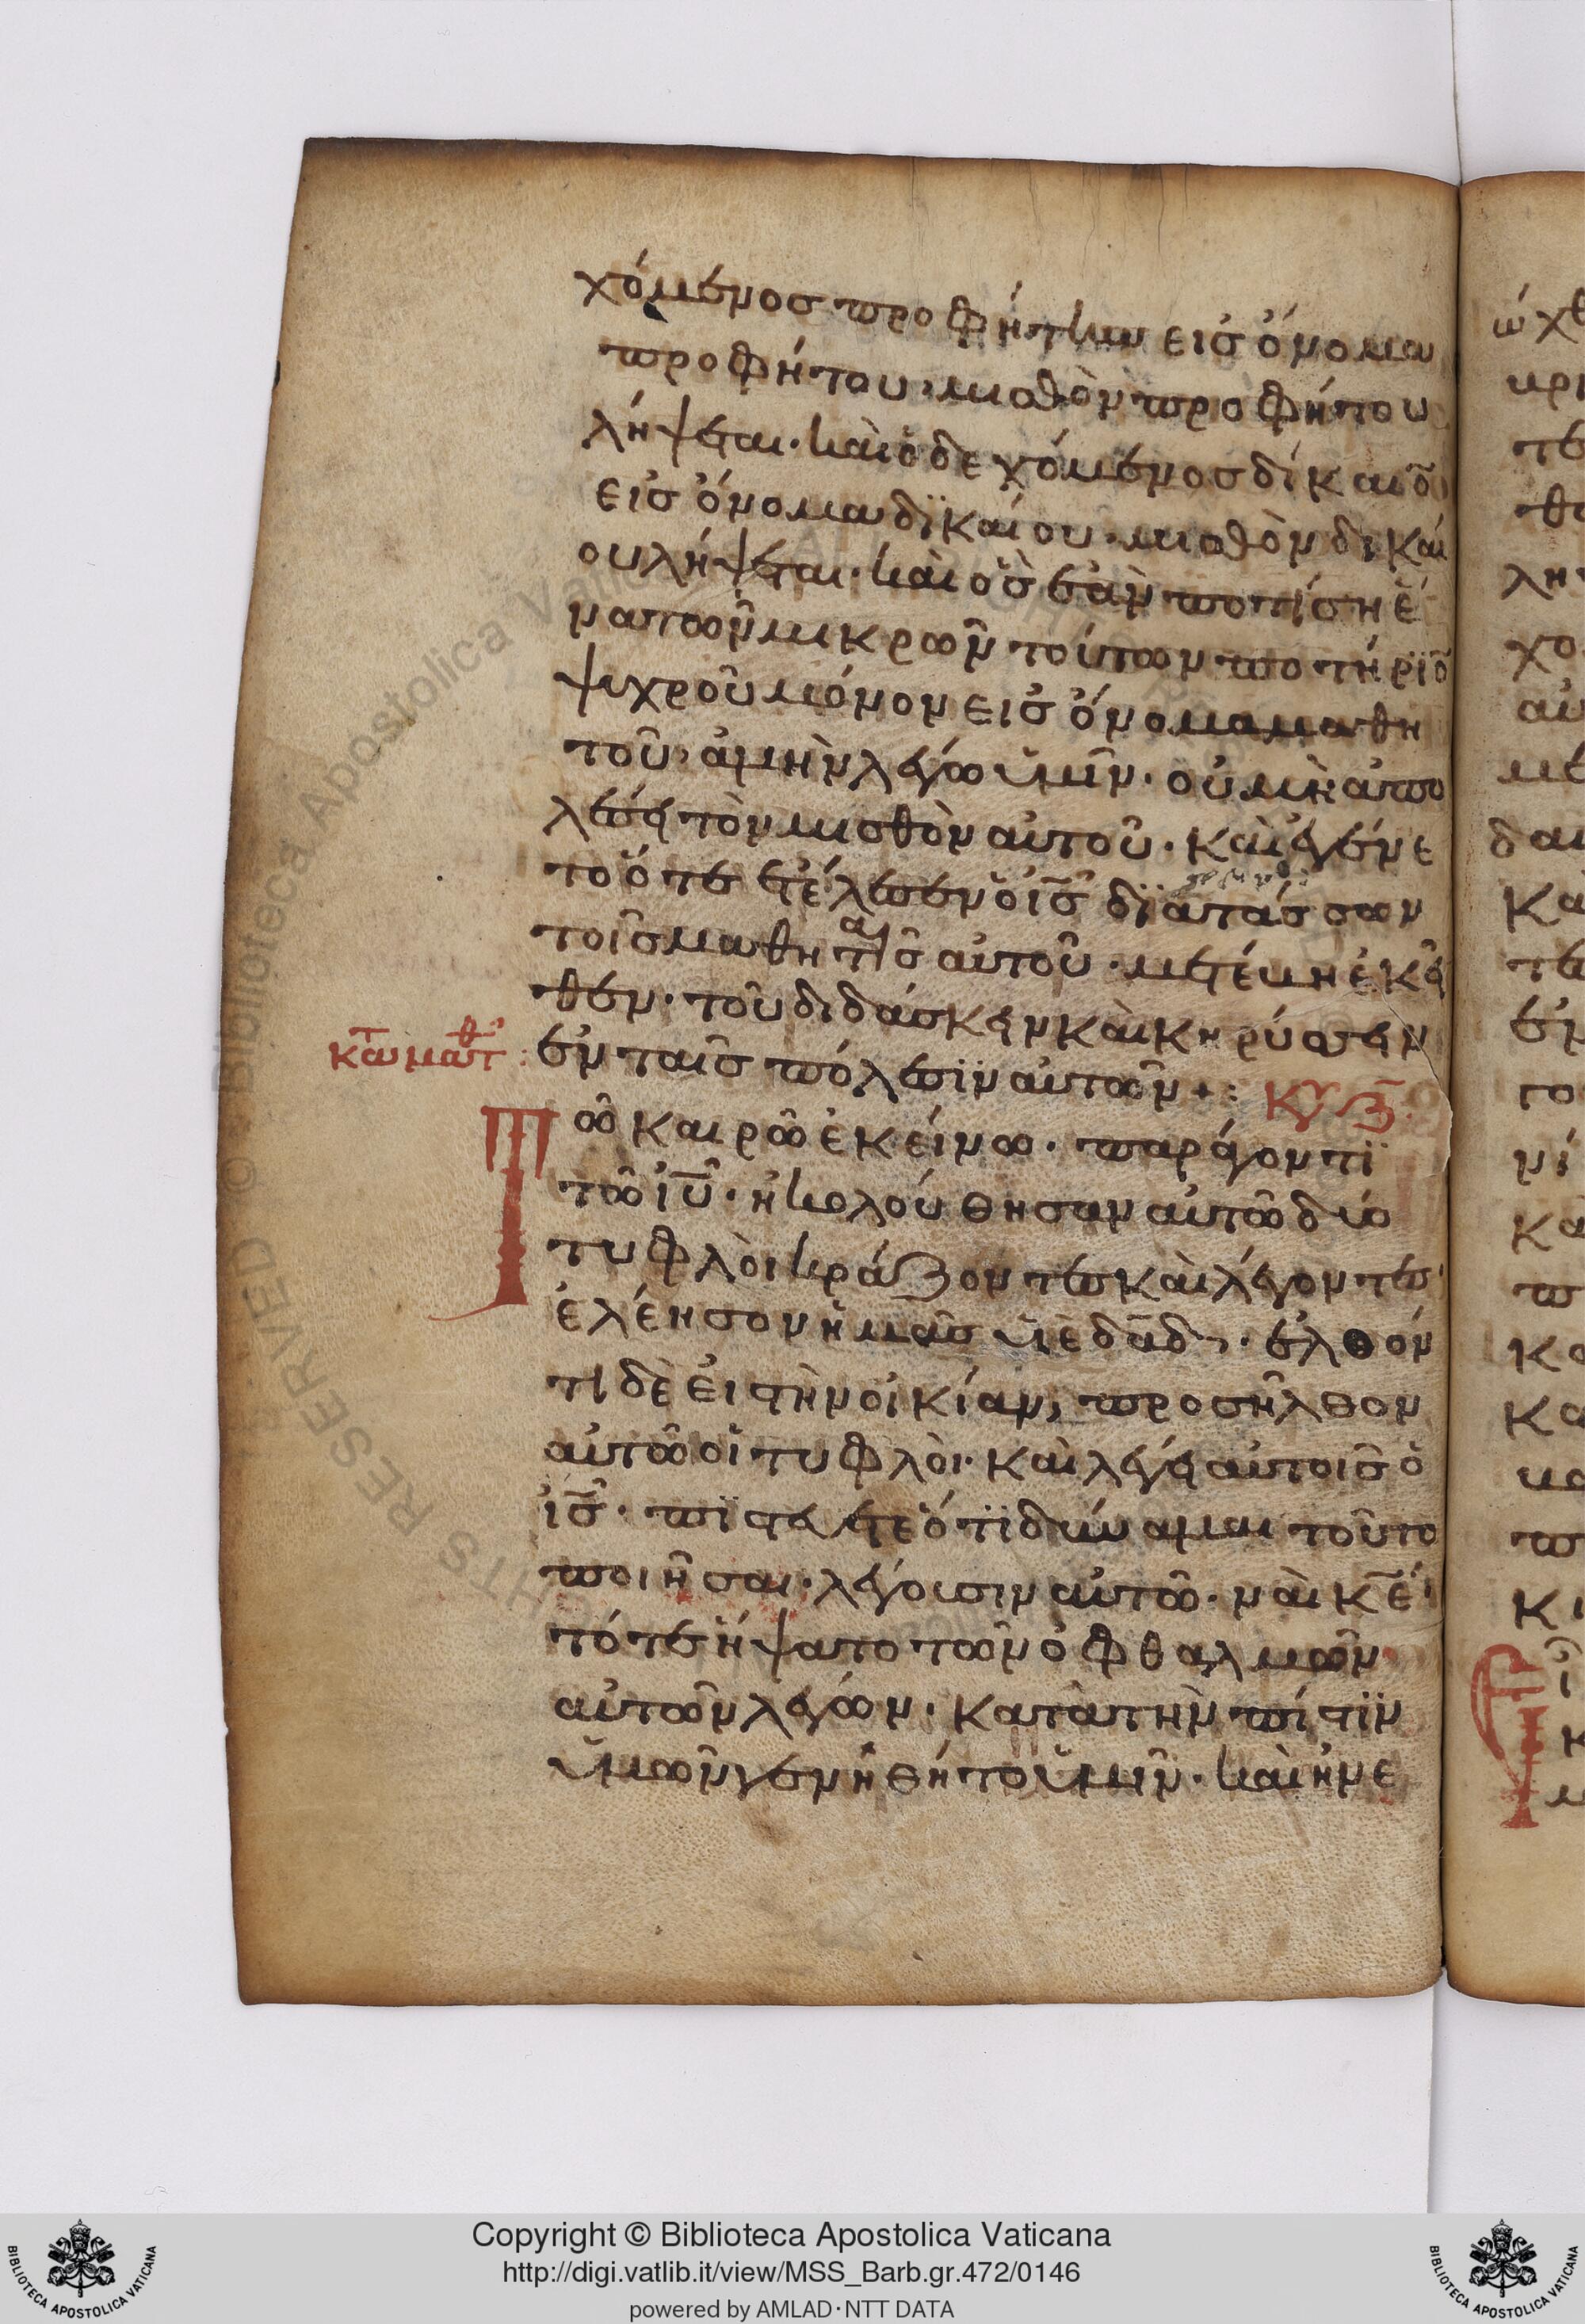 χόμενος προφήτην εἰσ ὄνομα
προφήτου, μισθὸν προφήτου
λήψεται· καὶ ὁ δεχόμενος δίκαιο̄
εἰσ ὄνομα δϊκαίου· μισθὸν δικαί
ου λήψεται· καὶ ὃσ ἐὰν ποτίση ἕ
να τῶν μικρῶν τούτων ποτήρϊο̄
ψυχροῦ μόνον εἰσ ὄνομα μαθη
τοῦ, ἀμὴν λέγω ὑμῖν· οὐ μὴ ἀπο
λέσει τὸν μισθὸν αὐτοῦ· καὶ ἐγένε
το ὅτε ετέλεσεν ὁ ι̅σ̅ δϊατάσσων
τοῖσ μαθηταῖσ αὐτοῦ· μετέβη ἐκεῖ
θεν· τοῦ διδάσκειν καὶ κηρύσσειν
ἐν ταῖσ πόλεσϊν αὐτῶν +: Κυ ζ
κτ̅ω ματθ:
Τῶ καιρῶ ἐκείνω· παράγοντϊ
τῶ ι̅υ̅· ἠκολούθησαν αὐτῶ δύο
τυφλὸι κράζοντεσ καὶ λέγοντεσ·
ἐλέησον ἡμᾶσ ὑϊὲ δα̅δ· ἐλθόν
τι δὲ εἰσ τὴν οἰκίαν, προσῆλθον
αὐτῶ οἱ τυφλὸι· καὶ λέγει αὐτοῖσ ὁ
ι̅σ̅· πϊστεύετε ὅτϊ δύναμαι τοῦτο
ποιῆσαι· λέγουσιν αὐτῶ· ναὶ κ̅ε̅·
τότε ἥψατο τῶν ὀφθαλμῶν
αὐτῶν λέγων· κατὰ τὴν πίστϊν
ὑμῶν γενηθήτο ὑμῖν· καὶ ἠνε
Copyright © Biblioteca Apostolica Vaticana
http://digi.vatlib.it/view/MSS_Barb.gr.472/0146
powered by AMLAD·NTT DATA
BIBLIOTECA APOSTOLICA VATICANA
BIBLIOTECA APOSTOLICA VATICANA